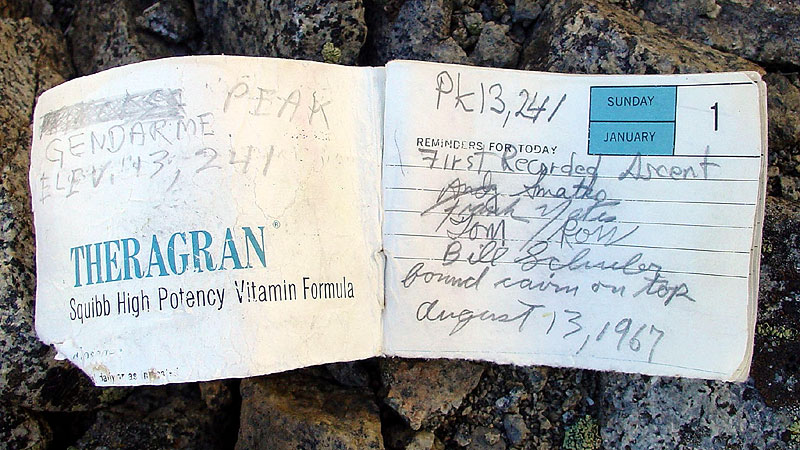 PEAK
GENDARME
ELEV. 13,241
THERAGRAN®
Squibb High Potency Vitamin Formula
Pk 13,241
SUNDAY
JANUARY
1
REMINDERS FOR TODAY
First Recorded Ascent
Andy Smatko
Frank Yates
Tom Ross
Bill Schuler
found cairn on top
August 13, 1967